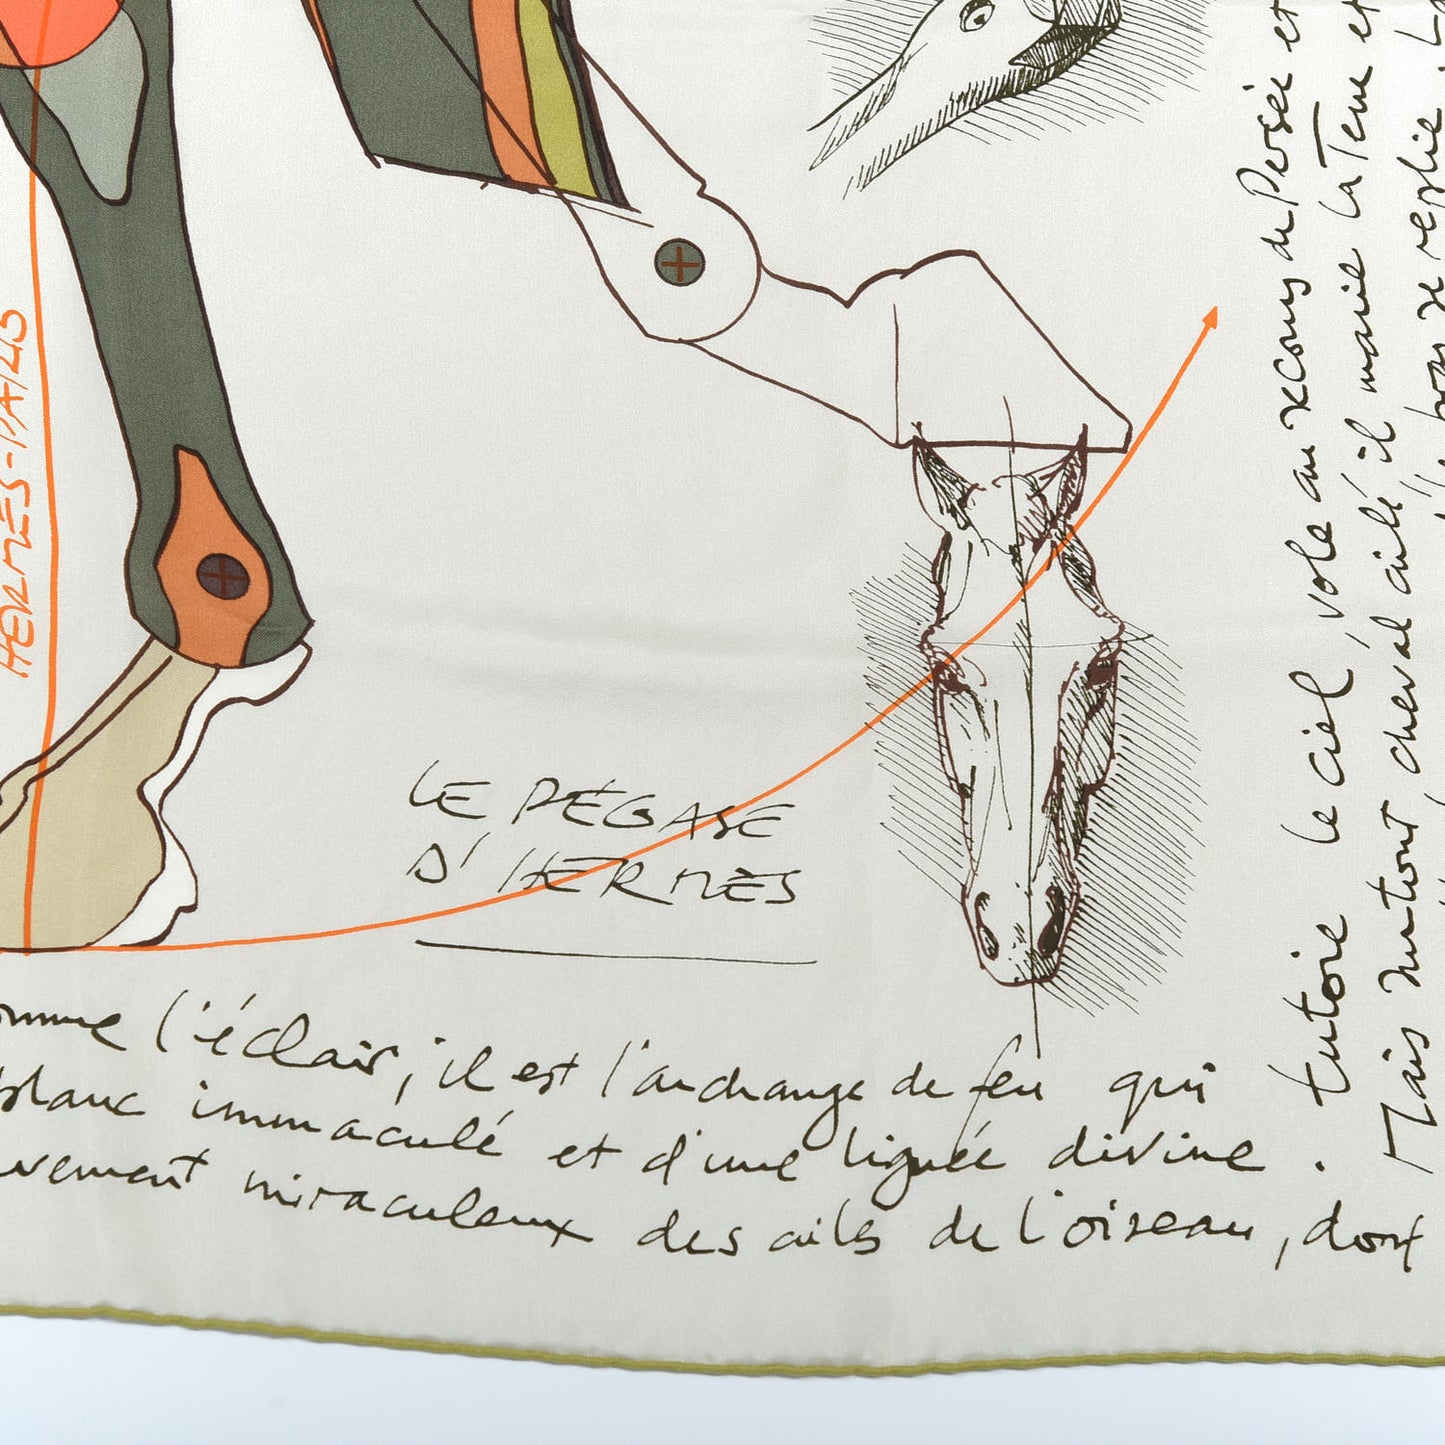 HERMÈS-PARIS
LE PÉGASE
D'HERMÈS
l'éclair, il est l'archange de feu qui
blanc immaculé et d'une lignée divine.
miraculeux des ailes de l'oiseau, dont
tutoie le ciel, vole au secours de Persée et
Mais surtout, cheval ailé il marie la Terre et
se replie. La